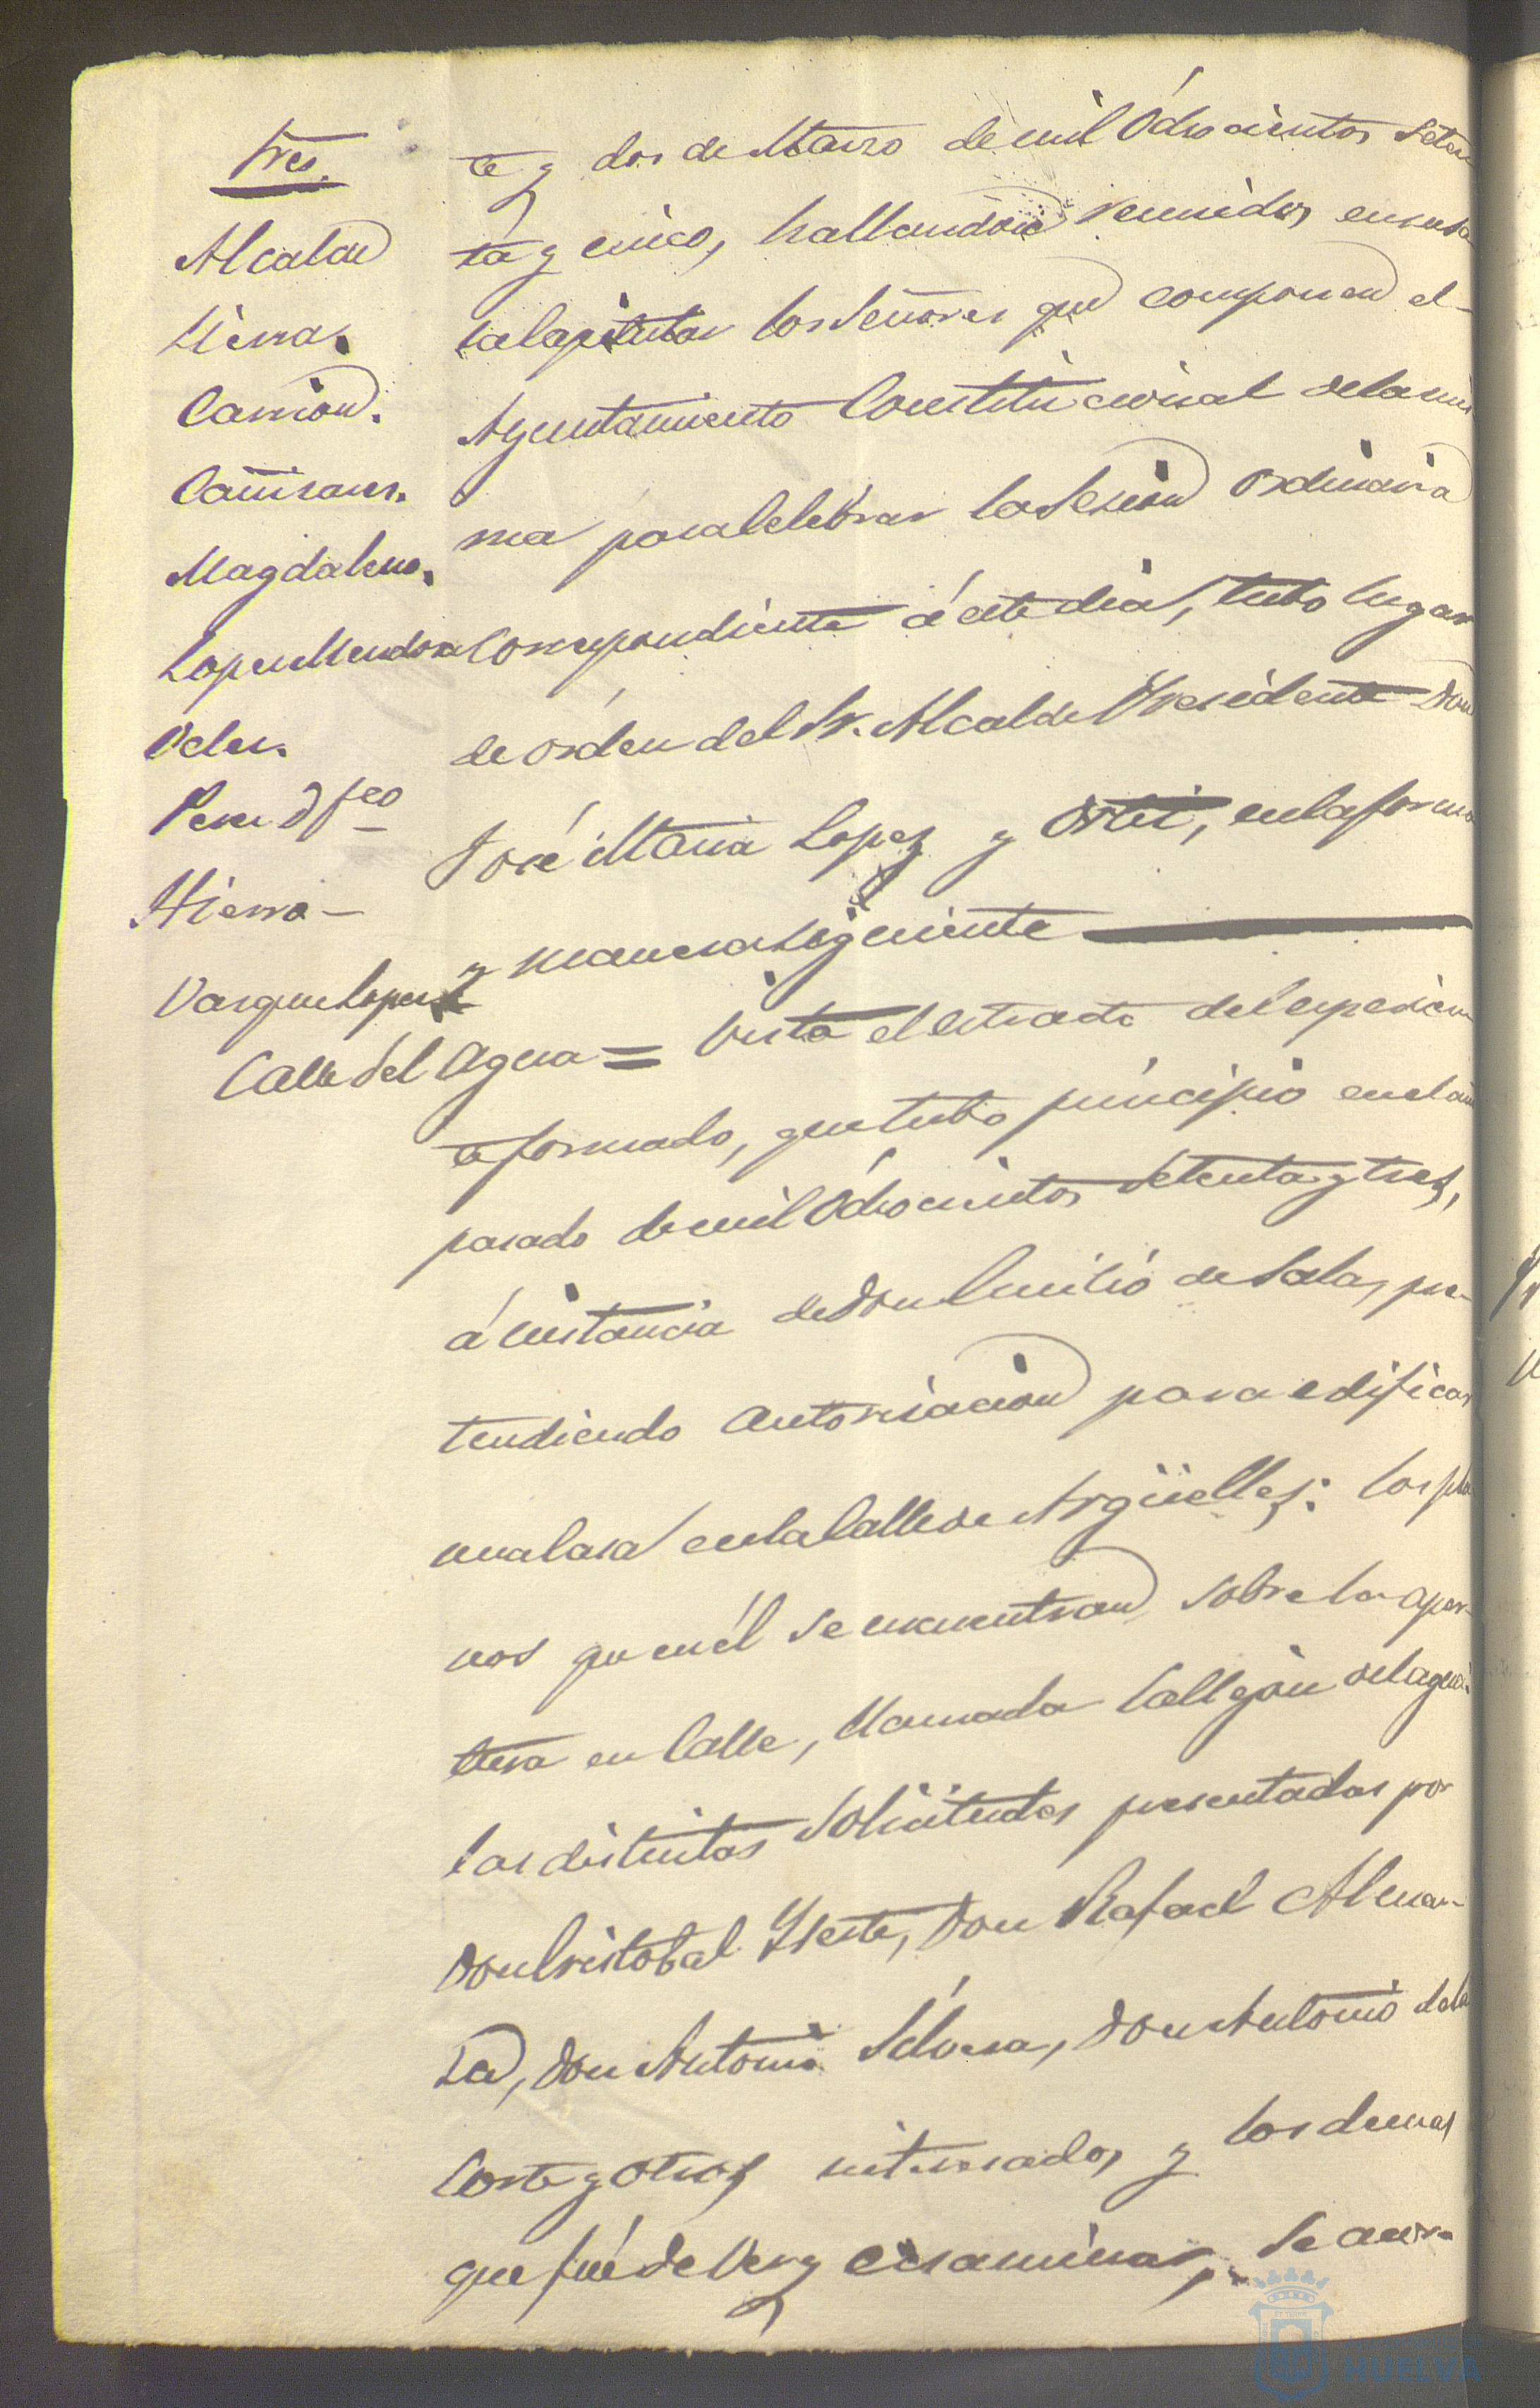 Sres.
Alcalde
Hierra.
Carrion.
Cañisares.
Magdaleno.
Lopez Mendoza
Velez.
Perez D. Fco
Hierro -
Vazquez Lopez
te y dos de Marzo de mil Ochocientos Seten
ta y cinco, hallandose reunidos en su sa
la Capitular los Señores que componen el
Ayuntamiento Constitucional de la mis
ma para Celebrar la Sesion Ordinaria
Correspondiente á este dia, tubo lugar
de órden del Sr. Alcalde Presidente Don
José Maria Lopez y Ortiz, en la forma
y manera Siguiente
Calle del Agua = Visto el estracto del espedien
te formado, que tubo principio en el año
pasado de mil Ochocientos Setenta y tres,
á instancia de Don Emilio de Salas, pre-
tendiendo autorisacion para edificar
una Casa en la Calle de Argüelles: los pla
nos que en él se encuentran sobre la aper-
tura en Calle, llamada Callejon del agua:
las distintas Solicitudes presentadas por
Don Cristobal Yseste, Don Rafael Alman-
sa, Don Antonio Selvesa, Don Antonio de la
Corte y otros interesados, y los demas
que fué de Ver y ecsaminar, Se acor-
HUELVA